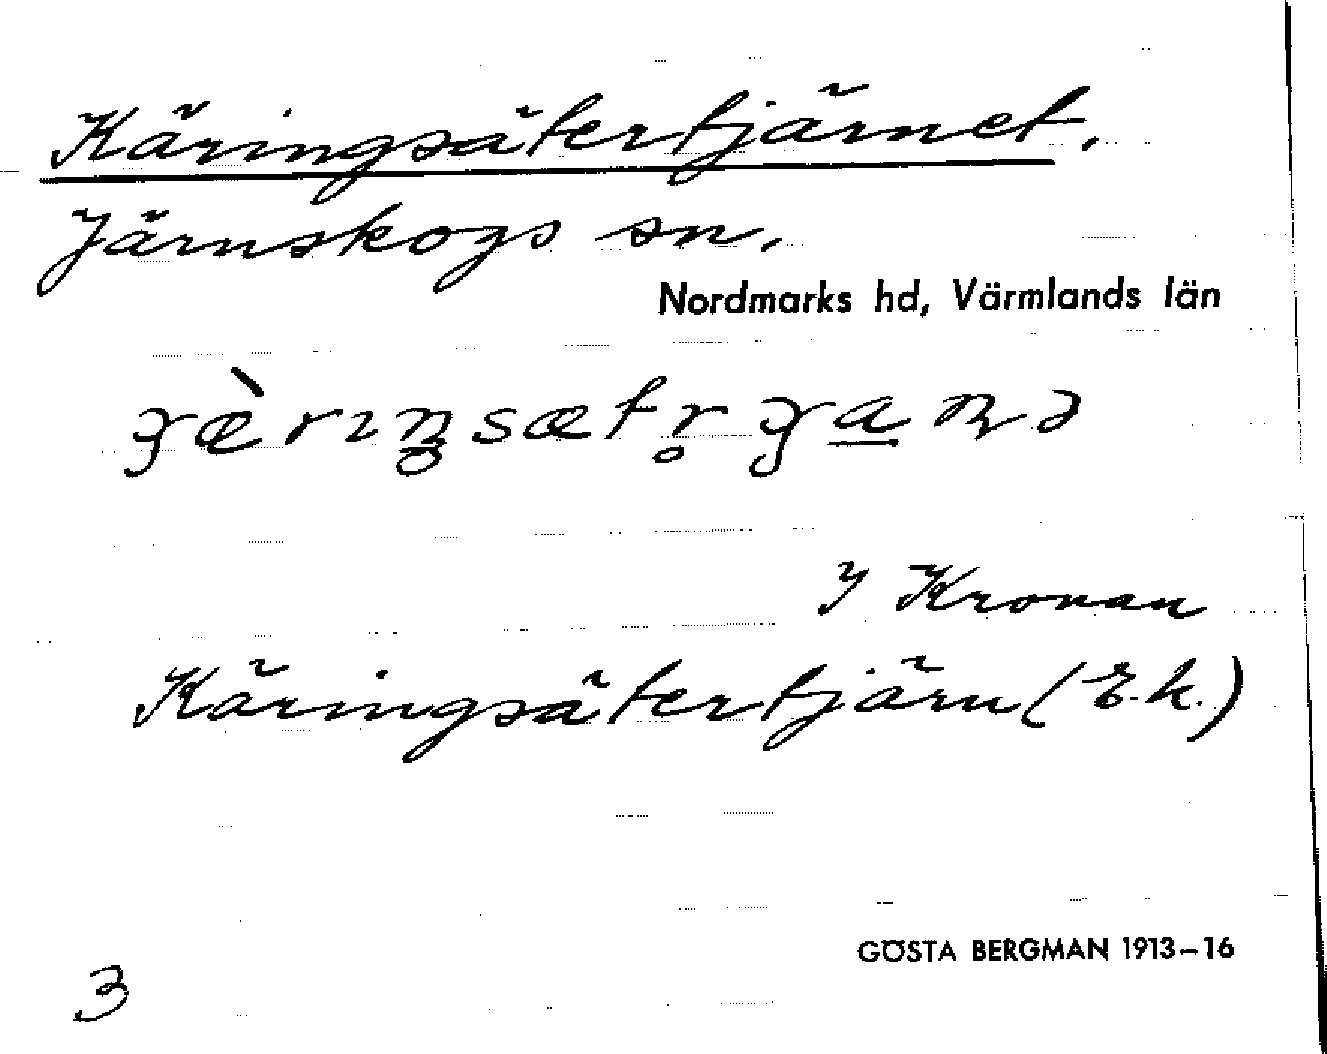 Käringsätertjärnet.
Järnskogs sn.
Nordmarks hd, Värmlands län
I Kronan
Käringsätertjärn (E.k.)
GÖSTA BERGMAN 1913–16
3